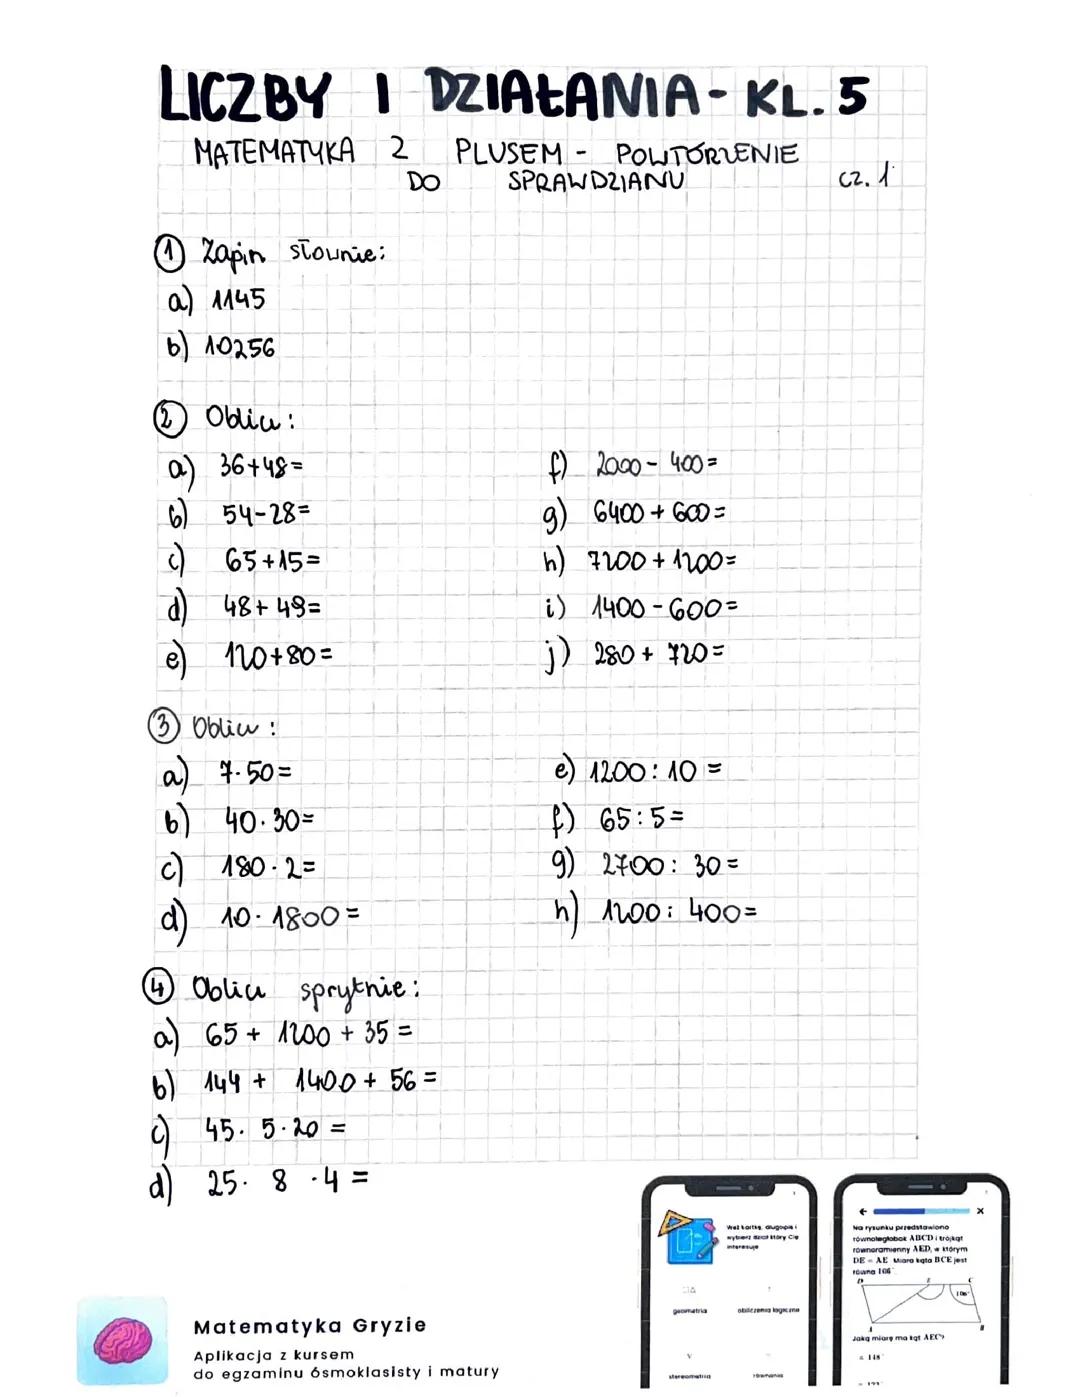 LICZBY I DZIAŁANIA - KL. 5
MATEMATYKA Z PLUSEM - POWTÓRZENIE
DO SPRAWDZIANU cz. 1
① Zapisz słownie:
a) 1145
b) 10256
② Oblicz:
a) 36+48=
b) 54-28=
c) 65+15=
d) 48+49=
e) 120+80=
f) 2000- 400=
g) 6400 + 600=
h) 7200 + 1200=
i) 1400 - 600=
j) 280 + 720=
③ Oblicz:
a) 7·50=
b) 40·30=
c) 180·2=
d) 10·1800=
e) 1200:10 =
f) 65:5=
g) 2700: 30=
h) 1200: 400=
④ Oblicz sprytnie:
a) 65 + 1200 + 35 =
b) 144 + 1400 + 56 =
c) 45· 5·20 =
d) 25· 8 ·4 =
Weź kartkę, długopis i
wybierz dział który Cię
interesuje
geometria
obliczenia logiczne
stereometria
równania
Na rysunku przedstawiono
równoległobok ABCD i trójkąt
równoramienny AED, w którym
DE = AE. Miara kąta BCE jest
równa 106°
D E C
106°
A B
Jaką miarę ma kąt AEC?
148°
Matematyka Gryzie
Aplikacja z kursem
do egzaminu ósmoklasisty i matury